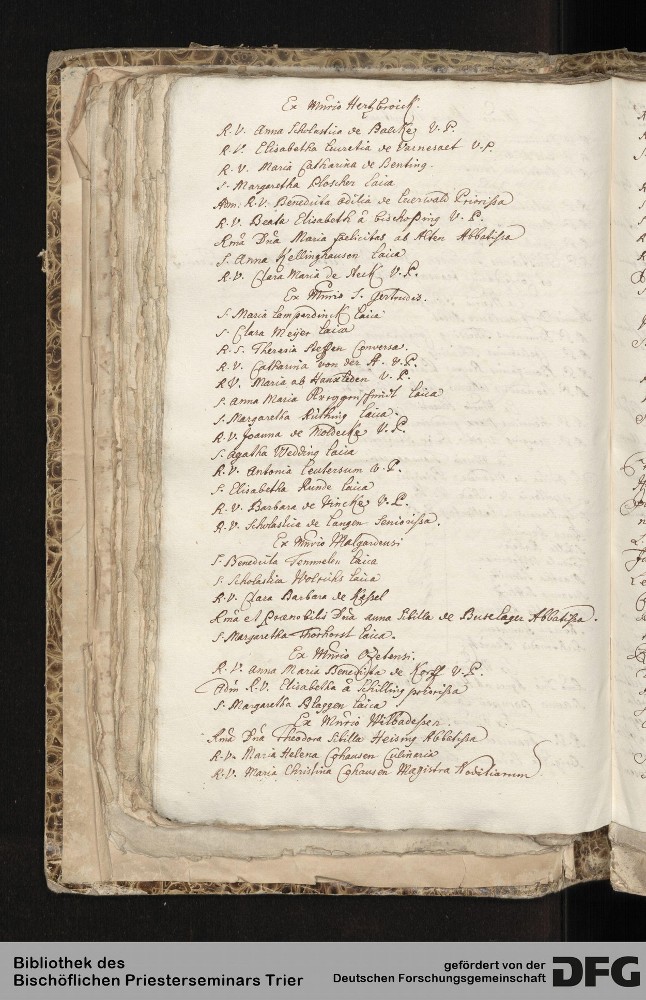 Ex Mnrio Hertzbroick.
R. V. Anna Scholastica de Baecke V. P.
R. V. Elisabetha Lucretia de Varnesaet V. P.
R. V. Maria Catharina de Benting.
S. Margaretha Ploscher Laica
Adm. R. V. Benedicta Odilia de Luerwald Priorissa
R. V. Beata Elisabeth â Bischopping V. P.
Rmâ Dnâ Maria Felicitas ab Alten Abbatissa
S. Anna Kellinghausen Laica
R. V. Clara Maria de Aeck V. P.
Ex Mnrio S. Gertrudis.
S. Maria Lompardinck Laica
S. Clara Meijer Laica
R. S. Theresia Steffen Conversa.
R. V. Catharina von der A. V. P.
R. V. Maria ab Hanxleden V. P.
S. Anna Maria Laica
S. Margaretha Rüthing Laica.
R. V. Joanna de Moldecke V. P.
S. Agatha Wedding Laica
R. V. Antonia Leutersum V. P.
S. Elisabetha Runde Laica
R. V. Barbara de Vincke V. P.
R. V. Scholastica de Langen Seniorissa.
Ex Mnrio Malgardensi
S. Benedicta Temmelen Laica
S. Scholastica Wolrichs Laica
R. V. Clara Barbara de Kassel
Rmâ et Praenobilis Dnâ Anna Sibilla de Buselager Abbatissa.
S. Margaretha Thorhorst Laica.
Ex Mnrio Ozetensi.
R. V. Anna Maria Benedicta de Korff V. P.
Adm R. V. Elisabetha â Schilling Priorissa
S. Margaretha Plaggen Laica
Ex Mnrio Wilbadessen.
Rmâ Dnâ Theodora Sibilla Heising Abbatissa
R. V. Maria Helena Cohausen Culinaria
R. V. Maria Christina Cohausen Magistra Novitiarum
Bibliothek des
Bischöflichen Priesterseminars Trier
gefördert von der
Deutschen Forschungsgemeinschaft
DFG